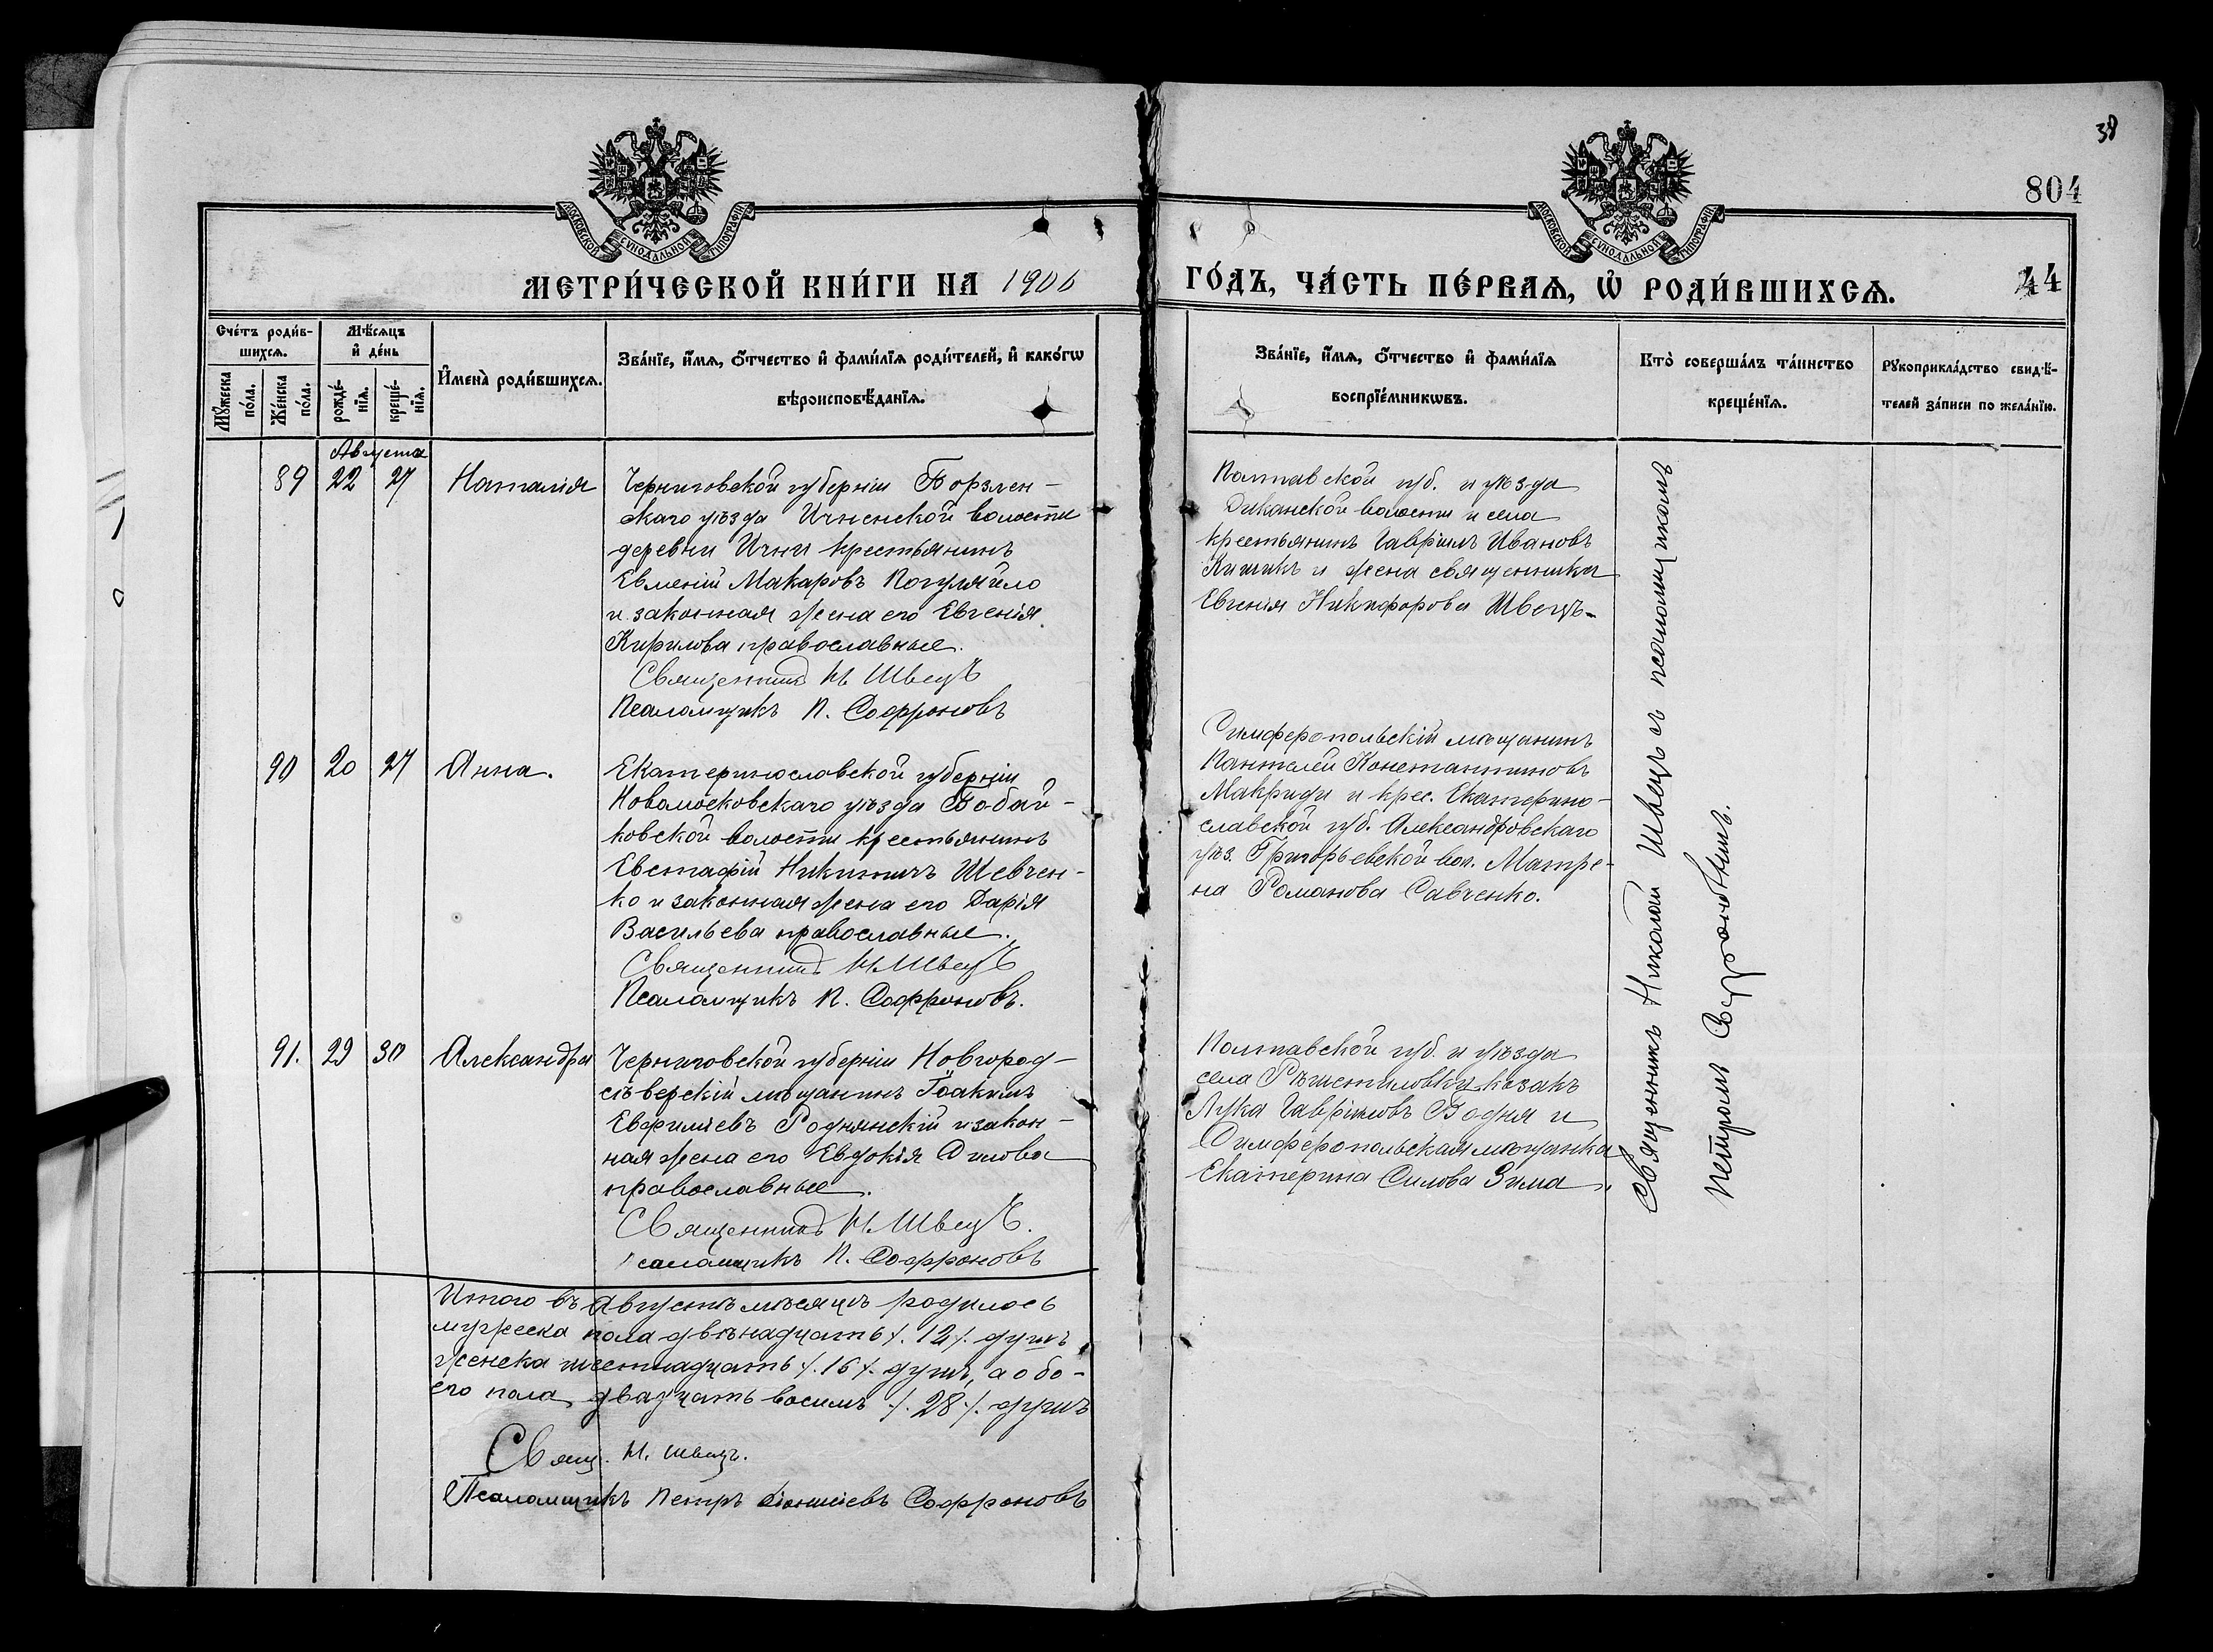 38
804
МОСКОВСКОЙ СУНОДАЛЬНОЙ ТИПОГРАФІИ
МОСКОВСКОЙ СУНОДАЛЬНОЙ ТИПОГРАФІИ
МЕТРИ́ЧЕСКОЙ КНИ́ГИ НА 1906
ГО́ДЪ, ЧА́СТЬ ПЕ́РВАѦ, Ѡ҆ РОДИ́ВШИХСѦ.
44
Сче́тъ роди́в-
шихсѧ.
Мꙋ́жеска
по́ла.
Же́нска
по́ла.
Мѣ́сѧцъ
и҆ де́нь
рожде́-
нїѧ.
креще́-
нїѧ.
И҆мена̀ роди́вшихсѧ.
Зва́нїе, и҆́мѧ, ѻ҆́тчество и҆ фами́лїѧ роди́телей, и҆ како́гѡ
вѣроисповѣ́данїѧ.
Зва́нїе, и҆́мѧ, ѻ҆́тчество и҆ фами́лїѧ
воспрїе́мникѡвъ.
Кто̀ соверша́лъ та́инство
креще́нїѧ.
Рꙋкоприкла́дство свидѣ́-
телей за́писи по жела́нїю.
Августа
89 22 27 Наталія
Черниговской губерніи Борзен-
скаго уѣзда Ичненской волости
деревни Ични крестьянинъ
Евменій Макаровъ Погуляйло
и законная жена его Евгенія
Кирилова православные.
Священникъ Н. Швецъ
Псаломщикъ П. Софроновъ
Полтавской губ. и уѣзда
Диканской волости и села
крестьянинъ Гавріилъ Ивановъ
и жена священника
Евгенія Никифорова Швецъ.
90 20 27 Анна.
Екатеринославской губерніи
Новомосковскаго уѣзда Бабай-
ковской волости крестьянинъ
Евстафій Никитичъ Шевчен-
ко и законная жена его Дарія
Васильева православные.
Священникъ Н. Швецъ
Псаломщикъ П. Софроновъ.
Симферопольскій мѣщанинъ
Пантелей Константиновъ
Макриди и крес. Екатерино-
славской губ. Александровскаго
уѣз. Григорьевской вол. Матре-
на Романова Савченко.
91. 29 30 Александра
Черниговской губерніи Новгород-
сѣверскій мѣщанинъ Іоакимъ
Евфиміевъ Роднянскій и закон-
ная жена его Евдокія
православные.
Священникъ Н. Швецъ.
Псаломщикъ П. Софроновъ
Полтавской губ. и уѣзда
села Рѣшетиловки козакъ
Лука Гавріиловъ Водня и
Симферопольская мѣщанка
Екатерина Силова Зима.
Священникъ Николай Швецъ съ псаломщикомъ
Петромъ Софроновымъ.
Итого въ Августѣ мѣсяцѣ родилось
мужеска пола двѣнадцать /. 12 /. душъ,
женска шестнадцать /. 16 /. душъ, а обо-
его пола двадцать восимъ /. 28 /. душъ
Свящ. Н. Швецъ.
Псаломщикъ Петръ Софроновъ